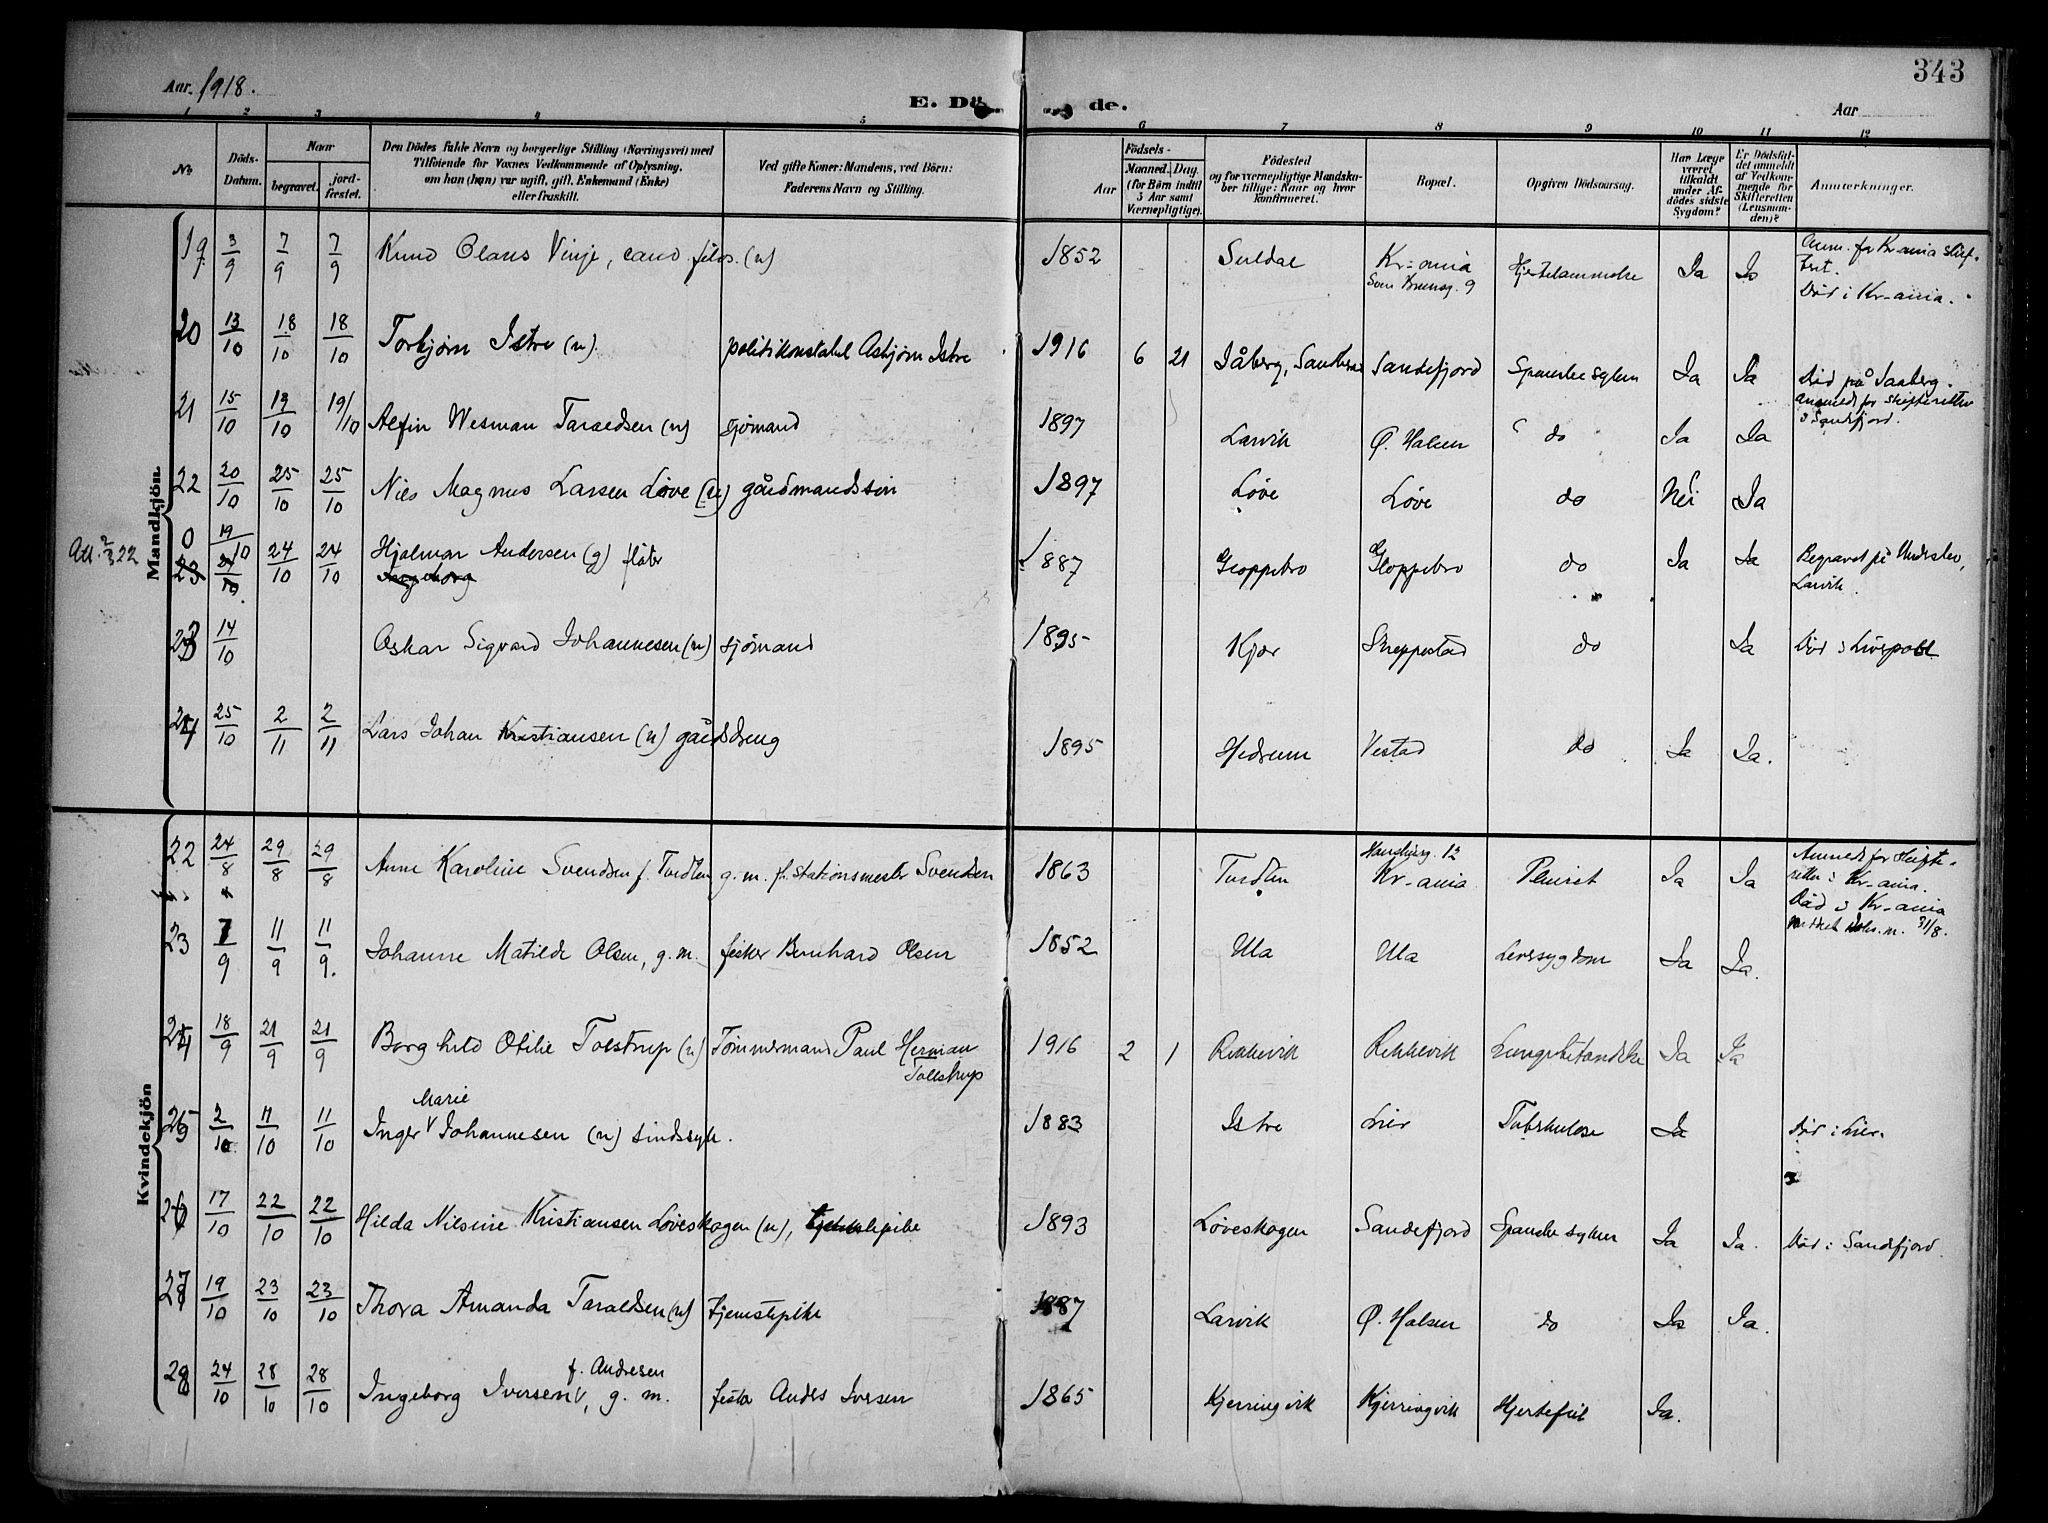 343
Aar 1918.
E. Dö de.
Aar
1 2 3 4 5 6 7 8 9 10 11 12
No.
Döds-Datum.
Naar
begravet.
jord-fæstet.
Den Dödes fulde Navn og borgerlige Stilling (Næringsvei) med
Tilföiende for Voxnes Vedkommende af Oplysning,
om han (hun) var ugift, gift, Enkemand (Enke)
eller fraskilt.
Ved gifte Koner: Mandens, ved Börn:
Faderens Navn og Stilling.
Födsels-
Aar
Maaned. Dag.
(for Börn indtil
5 Aar samt
Værnepligtige).
Födested
og for værnepligtige Mandska-
ber tillige: Naar og hvor
konfirmeret.
Bopæl.
Opgiven Dödsaarsag.
Har Læge
været
tilkaldt
under Af-
dödes sidste
Sygdom?
Er Dödsfal-
det anmeldt
af Vedkom-
mende for
Skifteretten
(Lensman-
den)?
Anmærkninger.
Mandkjön
19 3/9 7/9 7/9 Knud Olaus Vinje, cand. filos. (u) 1852 Suldal Kr-ania Hjertelammelse Ja Ja Anm. for Kr-ania skif-
tret.
Död i Kr-ania.
20 13/10 18/10 18/10 Torbjørn Istre (u) politikonstabel Asbjørn Istre 1916 6 21 Jåberg, Sandherad Sandefjord Spanske syken Ja Ja Död på Jaaberg.
anmeldt for skifteretten
i Sandefjord.
21 15/10 19/10 19/10 Alfin Wesman Taraldsen (u) sjømand 1897 Larvik Ø. Halsen do Ja Ja
22 20/10 25/10 25/10 Nils Magnus Larsen Løve (u) gårdmandssøn 1897 Løve Løve do Nei Ja
Att. 2/3 22
0 23 19/10 21/10 24/10 24/10 Hjalmar Andersen (g) fløter 1887 Gloppebro Gloppebro do Ja Ja Begravet på Undersbo,
Ingeborg Larvik.
23 14/10 Oskar Sigvard Johannesen (u) sjømand 1895 Kjær Skreppestad do Ja Död i Liverpool
24 25/10 2/11 2/11 Lars Johan Kristiansen (u) gårdsdreng 1895 Hedrum Vestad do Ja Ja.
Kvindekjön
22 24/8 29/8 29/8 Anne Karoline Svendsen f. Tvedten g. m. f. stationsmester Svendsen 1863 Tvedten Hausbørg. 12 Kr-ania Pleurit Ja Ja Anmeldt for skifte-
retten i Kr-ania.
Död i Kr-ania
31/8.
23 7/9 11/9 11/9. Johanne Matilde Olsen, g. m. fisker Bernhard Olsen 1852 Ula Ula Leversygdom Ja Ja.
24 18/9 21/9 21/9 Borghild Otilie Tolstrup (u) Tømmermand Paul Herman
Tollstrup 1916 2 1 Rekkevik Rekkevik Lungebetændelse Ja Ja
25 2/10 11/10 11/10 Inger Marie Johannesen (u) sindssyk. 1883 Istre Lier Tuberkulose Ja Död i Lier.
26 17/10 22/10 22/10 Hilda Nilsine Kristiansen Løveskogen (u), tjenestepike 1893 Løveskogen Sandefjord Spanske syken Ja Ja. Död i Sandefjord.
27 19/10 23/10 23/10 Thora Amanda Taraldsen (u) tjenestepike 1887 Larvik Ø. Halsen do Ja Ja.
28 24/10 28/10 28/10 Ingeborg Iversen f. Andresen, g. m. fisker Anders Iversen 1865 Kjerringvik Kjerringvik Hjertefeil Ja.